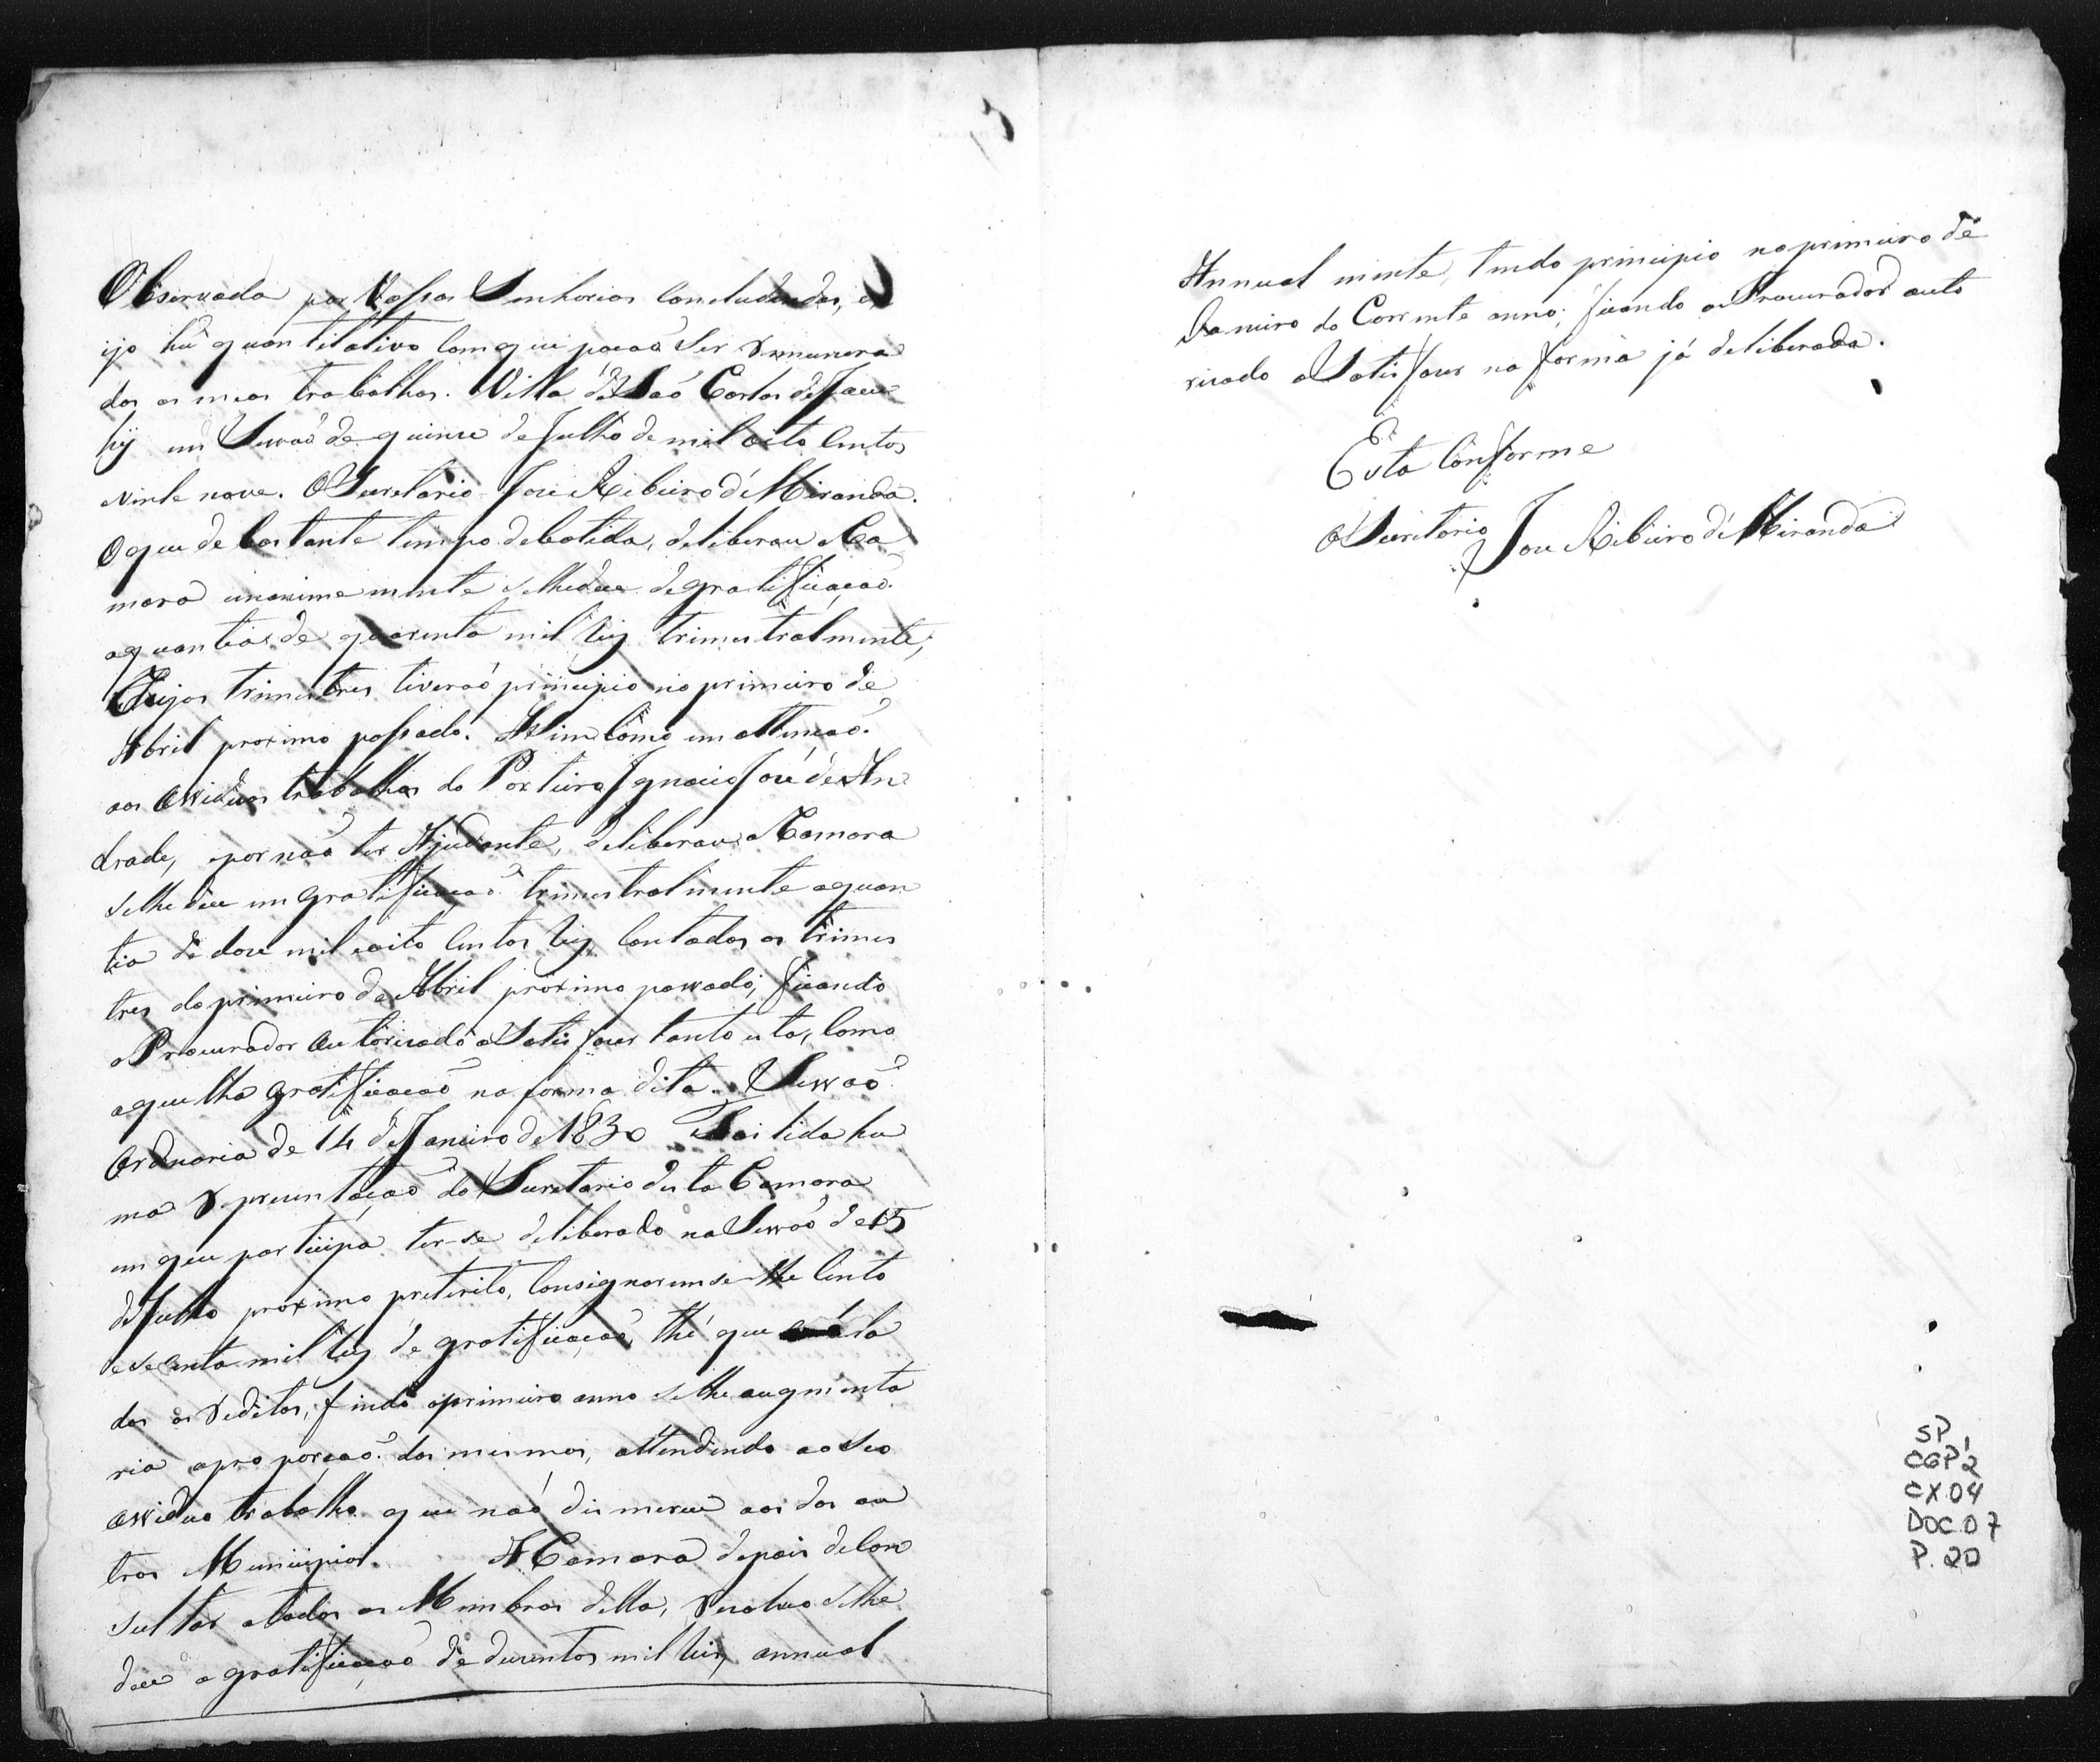 Observada por Vossas Senhorias Concludendos, ex
ijo hũ quantitativo Com que possaõ Ser Remunera
dos os meos trabalhos. Villa de Saõ Carlos de Jacu
hÿ em Sessaõ de quinze de Julho de mil oito Centos
vinte nove. O Secretario José Ribeiro d'Miranda.
O que de bastante tempo debatida, deliberou a Ca
mara unanimemente se lhe desse de gratificaçaõ
a quantia de quarenta mil reis trimestralmente;
Cujos trimestres tiveraõ principio no primeiro de
Abril proximo passado. Assim Como em attençaõ
aos Assiduos trabalhos do Porteiro Ignacio José de An
drade, e por naõ ter Ajudante, deliberou a Camara
se lhe desse em Gratificaçaõ trimestralmente a quan
tia de doze mil e oito Centos reis Contados os trimes
tres do primeiro de Abril proximo passado; ficando
o Procurador Autorizado a Satisfazer tanto esta, Como
aquella Gratificaçaõ na forma dita. Sessaõ
Ordinaria de 14 de Janeiro de 1830 Foi lida hu
ma Representaçaõ do Secretario desta Camara
em que participa ter-se deliberado na Sessaõ de 15
de Julho proximo preterito, Consignarem se-lhe Cento
e secenta mil reis de gratificaçaõ, thé que
dos os Reditos, findo o primeiro anno se lhe augmenta
ria a proporçaõ dos mesmos, attendendo ao Seo
assiduo trabalho que naõ desmerece aos dos ou
tros Municipios. A Camara depois de Con
sultar a todos os Membros della, Resolveo se lhe
desse a gratificaçaõ de duzentos mil reis, annual
Annualmente, tendo principio no primeiro de
Janeiro do Corrente anno; ficando o Procurador auto
rizado a Satisfazer na forma já deliberada.
Está Conforme
O Secretario José Ribeiro d'Miranda
SP,
CGP2
CX.04
DOC.07
P. 20